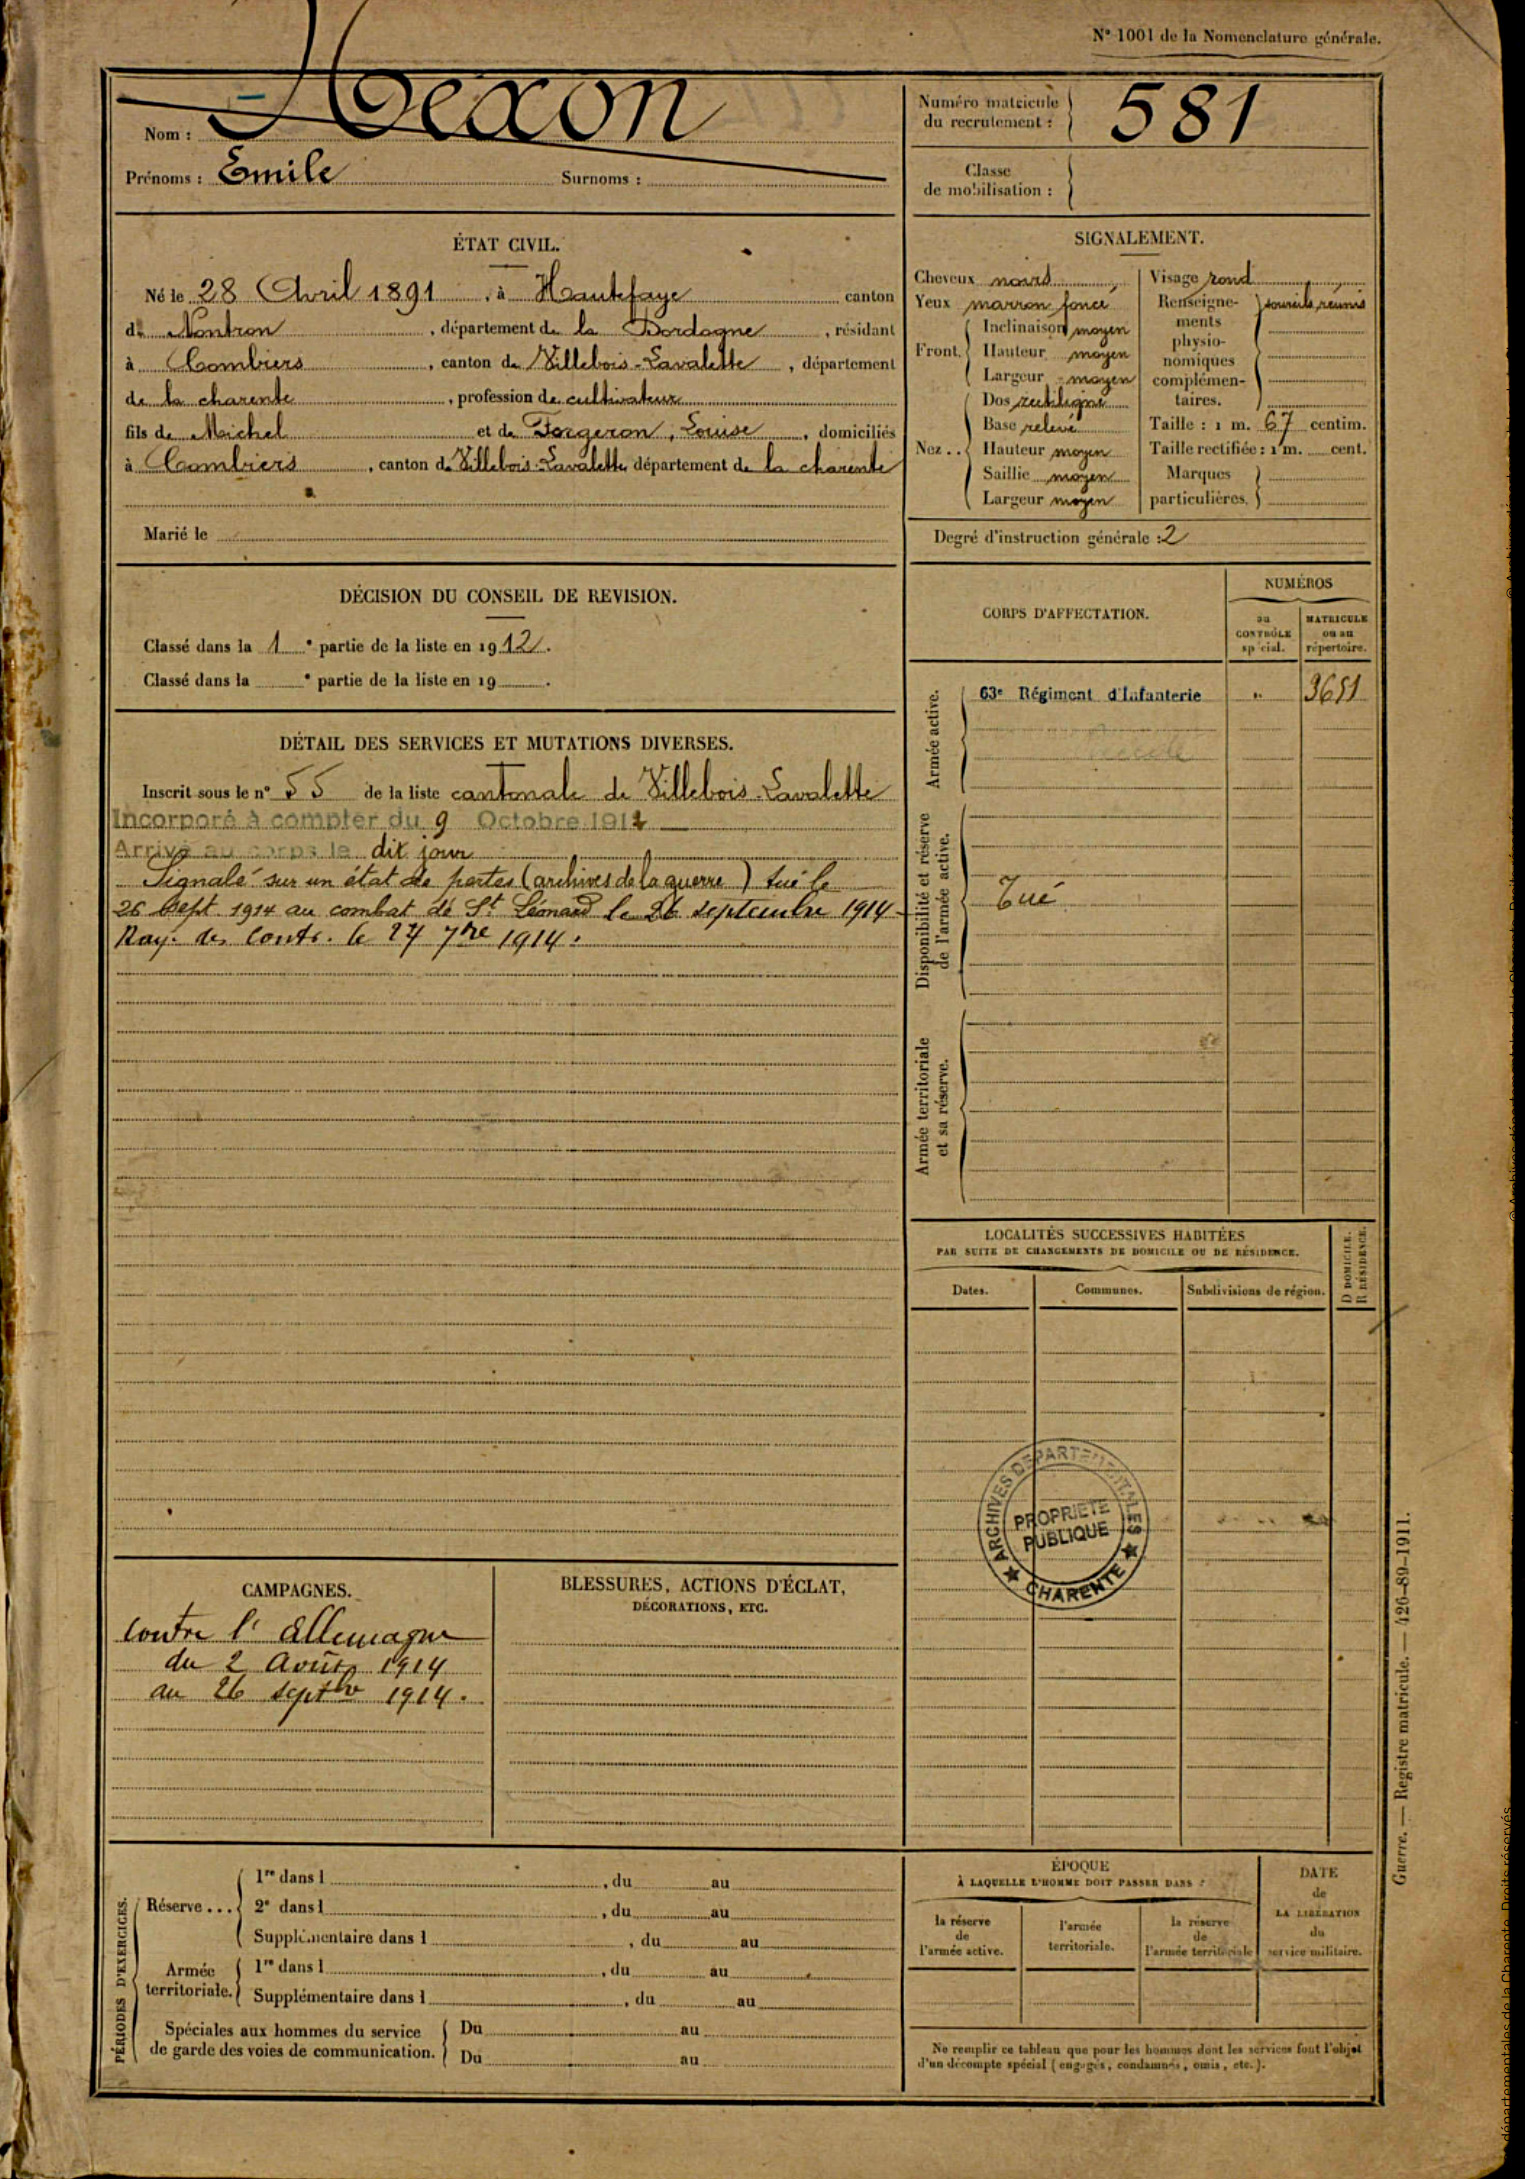 N° 1001 de la Nomenclature générale.
Nom : Hexon
Prénoms : Emile Surnoms :
Numéro matricule du recrutement : 581
Classe de mobilisation :
ÉTAT CIVIL.
Né le 28 Avril 1891, à Hautefaye canton
de Nontron, département de la Dordogne, résidant
à Combiers, canton de Villebois-Lavalette, département
de la charente, profession de cultivateur
fils de Michel et de Forgeron, Louise, domiciliés
à Combiers, canton de Villebois-Lavalette, département de la charente
Marié le
SIGNALEMENT.
Cheveux noirs
Yeux marron foncé
Front. Inclinaison moyen
Hauteur moyen
Largeur moyen
Nez .. Dos rectiligne
Base relevé
Hauteur moyen
Saillie moyen
Largeur moyen
Visage rond
Renseignements physionomiques complémentaires. sourcils réunis
Taille : 1 m. 67 centim.
Taille rectifiée : 1 m. cent.
Marques particulières.
Degré d'instruction générale : 2
DÉCISION DU CONSEIL DE REVISION.
Classé dans la 1e partie de la liste en 1912.
Classé dans la e partie de la liste en 19 .
CORPS D'AFFECTATION.
NUMÉROS
au CONTRÔLE spécial.
MATRICULE ou au répertoire.
Armée active.
63e Régiment d'Infanterie " 3651
Disponibilité et réserve de l'armée active.
Tué
Armée territoriale et sa réserve.
DÉTAIL DES SERVICES ET MUTATIONS DIVERSES.
Inscrit sous le n° 55 de la liste cantonale de Villebois-Lavalette
Incorporé à compter du 9 Octobre 1912
Arrivé au corps le dit jour
Signalé sur un état de pertes (archives de la guerre) tué le
26 Sept. 1914 au combat de St Léonard le 26 septembre 1914
Ray. des contr. le 27 7bre 1914.
LOCALITÉS SUCCESSIVES HABITÉES
PAR SUITE DE CHANGEMENTS DE DOMICILE OU DE RÉSIDENCE.
Dates.
Communes.
Subdivisions de région.
D DOMICILE.
R RÉSIDENCE.
ARCHIVES DÉPARTEMENTALES
PROPRIETE
PUBLIQUE
CHARENTE
CAMPAGNES.
contre l'Allemagne
du 2 Août 1914
au 26 septbre 1914.
BLESSURES, ACTIONS D'ÉCLAT,
DÉCORATIONS, ETC.
PÉRIODES D'EXERCICES.
Réserve ...
1re dans l , du au
2e dans l , du au
Supplémentaire dans l , du au
Armée territoriale.
1re dans l , du au
Supplémentaire dans l , du au
Spéciales aux hommes du service
de garde des voies de communication.
Du au
Du au
ÉPOQUE
À LAQUELLE L'HOMME DOIT PASSER DANS :
la réserve de l'armée active.
l'armée territoriale.
la réserve de l'armée territoriale
DATE de LA LIBÉRATION du service militaire.
Ne remplir ce tableau que pour les hommes dont les services font l'objet
d'un décompte spécial (engagés, condamnés, omis, etc.).
Guerre. — Registre matricule. — 426-89-1911.
départementales de la Charente. Droits réservés